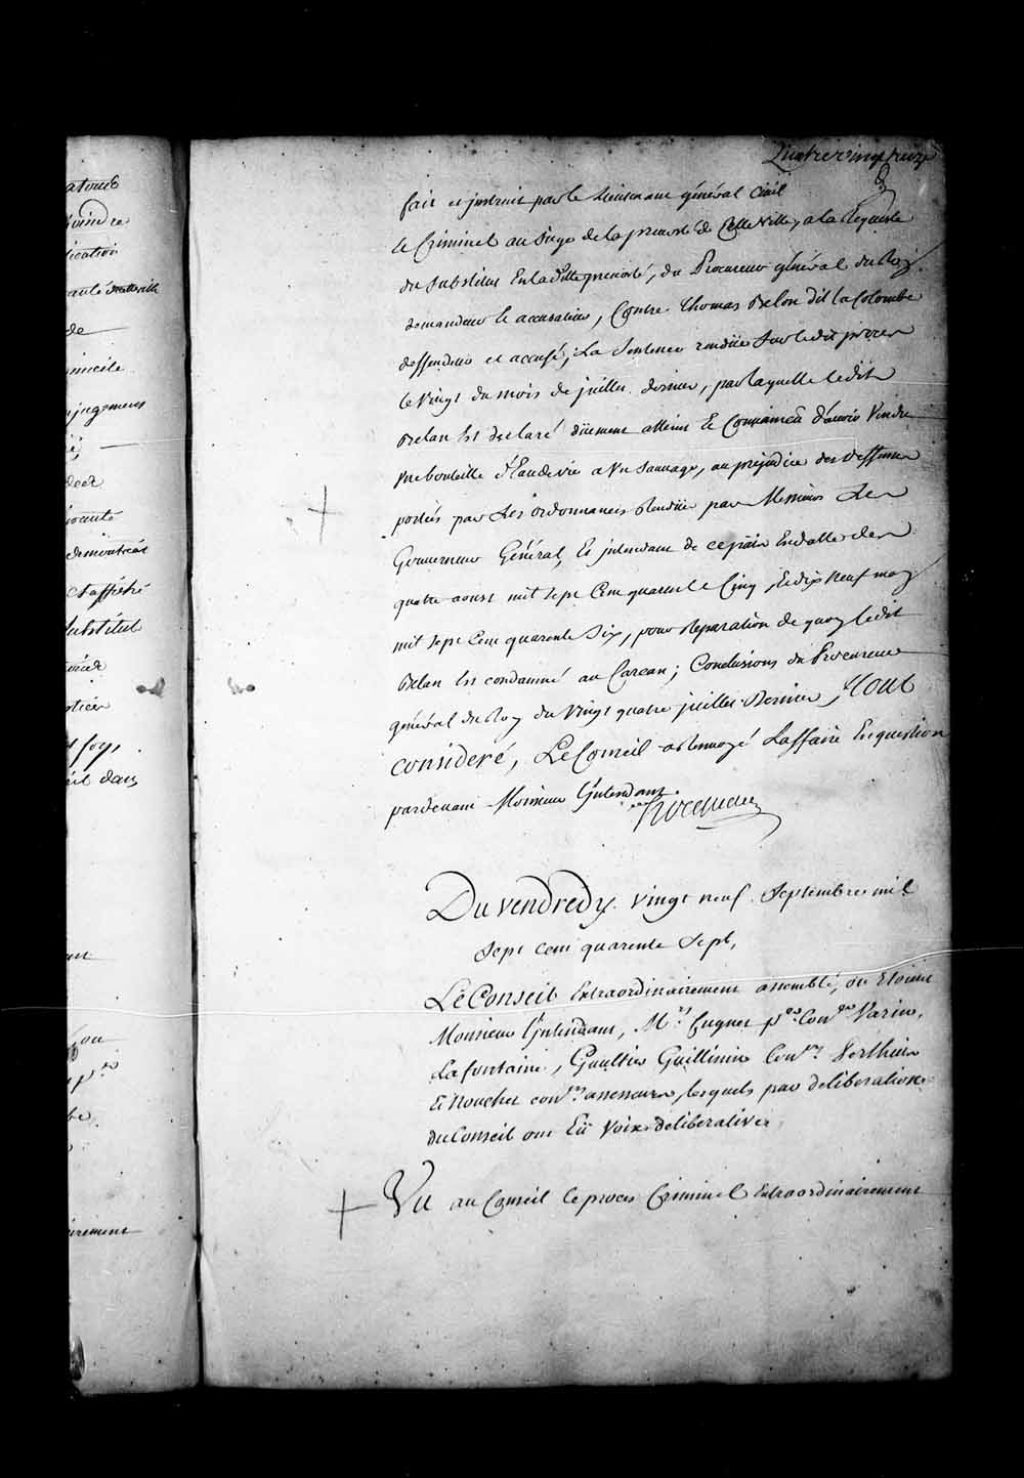 Quatre vingt treize
fait et instruit par le Lieutenant général Civil
Et Criminel au Siege de la prevosté de Cette Ville, a la Requeste
du Substitut En laditte prevosté, du Procureur général du Roy
demandeur et accusateur, Contre Thomas Belan dit la Colombe
deffendeur et accusé; La Sentence rendüe Sur ledit procez
le Vingt du mois de juillet dernier, par laquelle ledit
Belan Est declaré düement atteint Et Convaincu d'avoir Vendu
une bouteille d'Eau de vie a Un Sauvage, au prejudice des deffenses
portées par Les ordonnances Rendües par Messieurs Les
Gouverneur Général, Et intendant de ce païs En datte des
quatre aoust mil sept Cent quarente Cinq, Et dix Neuf may
mil sept Cent quarente Six, pour Reparation de quoy ledit
Belan Est condamné au Carcan; Conclusions du Procureur
général du Roy du Vingt quatre juillet Dernier, Tout
consideré, Le Conseil a Renvoyé Laffaire En question
pardevant Monsieur L'intendant.
Hocquart
Du vendredy vingt neuf Septembre mil
Sept cent quarente Sept,
Le Conseil Extraordinairement assemblé, ou Etoient
Monsieur L'intendant, Mrs. Cugnet per. Conser Varin,
Lafontaine, Gaultier Guillimin Coners. Berthier
Et Nouchet coners. assesseurs, lesquels par deliberation
du Conseil ont Eü Voix deliberative,
Vu au Conseil le procez Criminel Extraordinairement
atoue
joindre
dication
de
omicile
jugement
joanté
demontrée
Et affiché
Substitut
foys
eil dans
ou
pr
irement